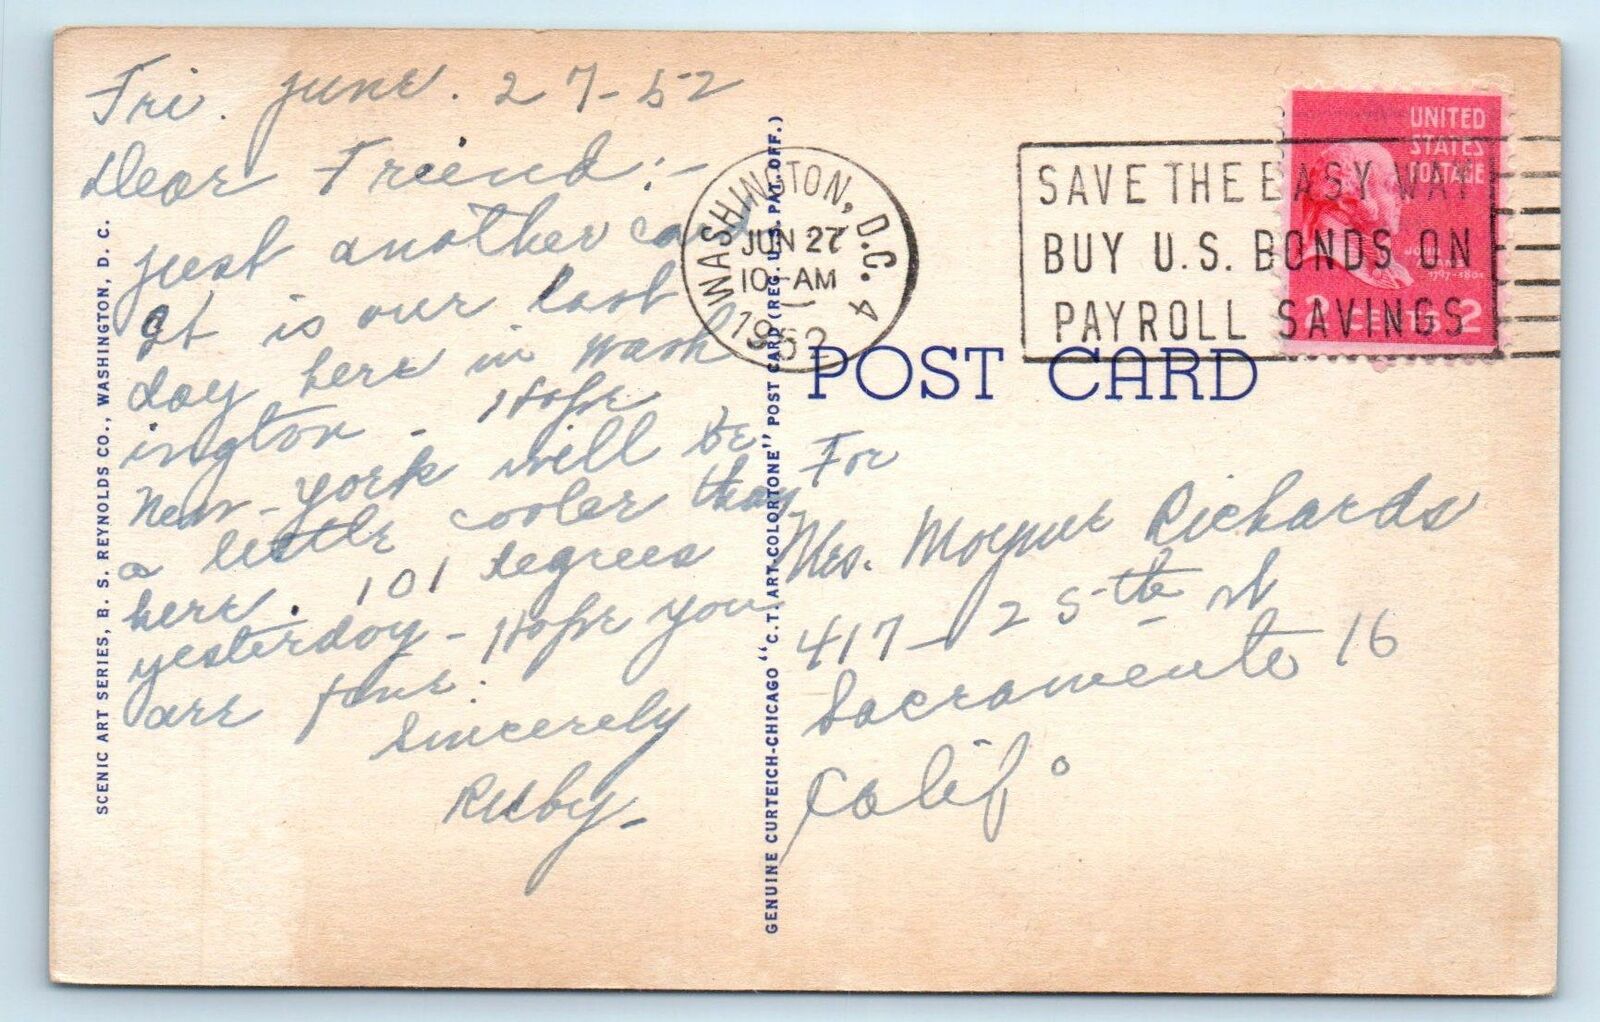 Fri. June. 27-52
Dear Friend:-
just another card
It is our last
day here in Wash
ington - Hope
New-York will be
a little cooler than
here. 101 degrees
yesterday - Hope you
are fine.
Sincerely
Ruby-
SCENIC ART SERIES, B. S. REYNOLDS CO., WASHINGTON, D. C.
GENUINE CURTEICH-CHICAGO "C.T. ART-COLORTONE" POST CARD (REG. U.S. PAT. OFF.)
WASHINGTON, D.C. 4
JUN 27
10-AM
1952
SAVE THE EASY WAY
BUY U.S. BONDS ON
PAYROLL SAVINGS
UNITED
STATES
POSTAGE
JOHN ADAMS
1797-1801
2 CENTS 2
POST CARD
For
Mrs. Richards
417-25th st
Sacramento 16
Calif.